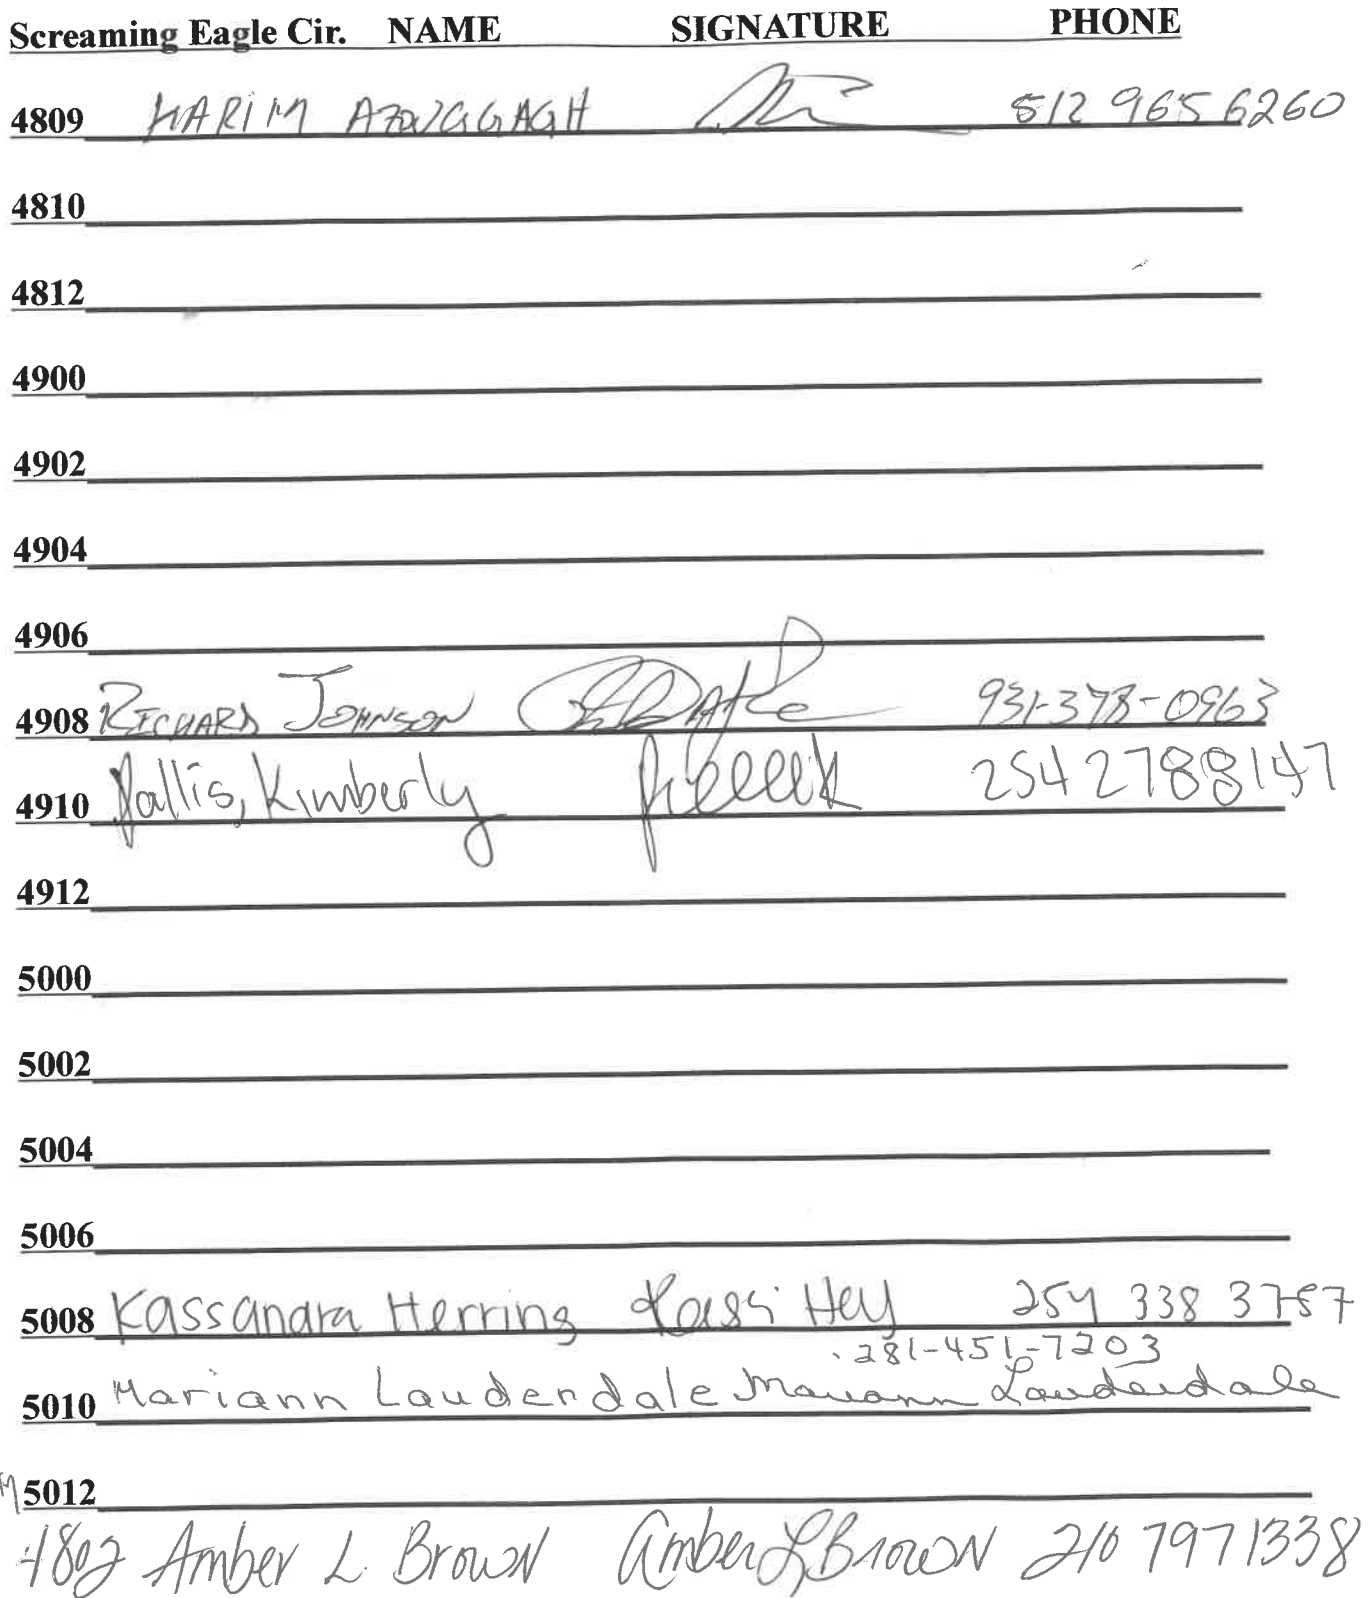 Screaming Eagle Cir. NAME SIGNATURE PHONE
4809 KARIM AZOUGGAGH 512 965 6260
4810
4812
4900
4902
4904
4906
4908 RICHARD JOHNSON 931-378-0963
4910 Pallis, Kimberly 254 2788147
4912
5000
5002
5004
5006
5008 Kassandra Herring Kassi Hey 254 338 3787
281-451-7203
5010 Mariann Lauderdale Mariann Lauderdale
5012
4802 Amber L Brown Amber L Brown 210 7971338